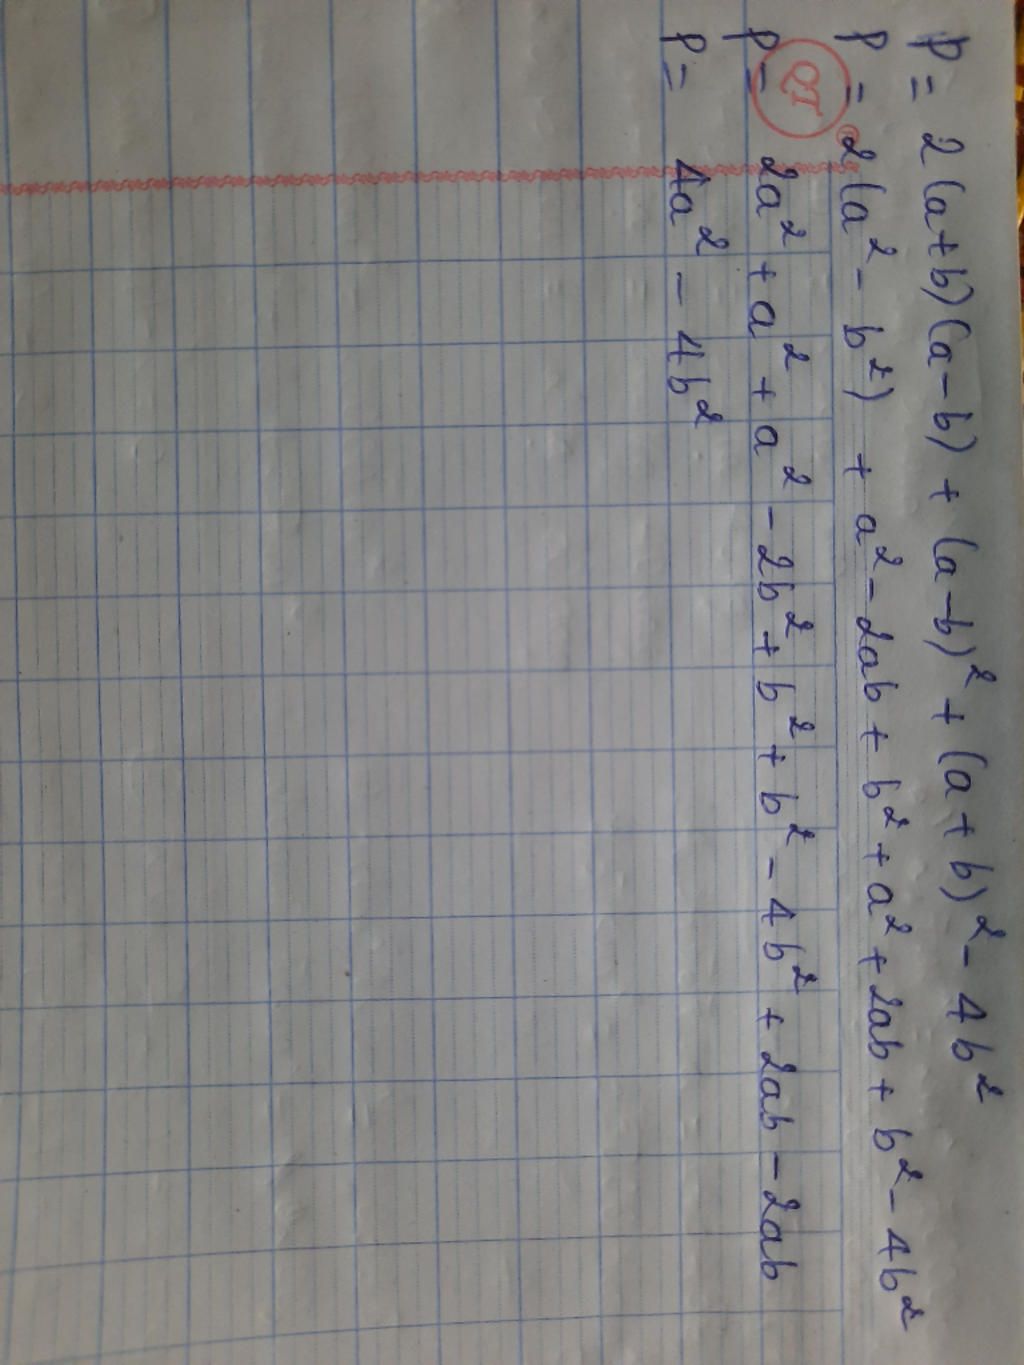 P = 2(a+b)(a-b) + (a-b)² + (a+b)² - 4b²
P = 2(a² - b²) + a² - 2ab + b² + a² + 2ab + b² - 4b²
P = 2a² + a² + a² - 2b² + b² + b² - 4b² + 2ab - 2ab
P = 4a² - 4b²